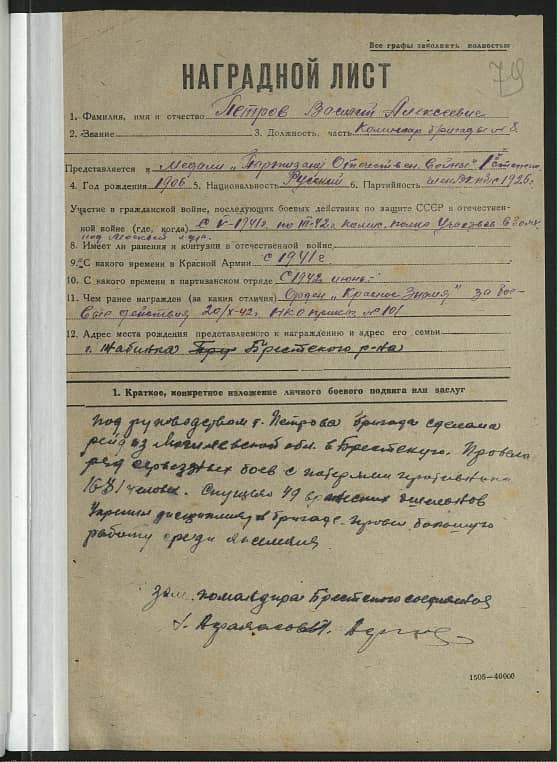 Все графы заполнить полностью
79
НАГРАДНОЙ ЛИСТ
1. Фамилия, имя и отчество Петров Василий Алексеевич
2. Звание 3. Должность, часть Комиссар бригады № 8
Представляется к Медали "Партизану Отечествен. Войны" 1й степени
4. Год рождения 1906 5. Национальность Русский 6. Партийность с 1926 г.
Участие в гражданской войне, последующих боевых действиях по защите СССР и отечествен-
ной войне (где, когда) С V-1941 г. по полка Участвовал в боях
под Москвой
8. Имеет ли ранения и контузии в отечественной войне
9. С какого времени в Красной Армии с 1941 г.
10. С какого времени в партизанском отряде с 1942 июнь
11. Чем ранее награжден (за какия отличия) Орден "Красное Знамя" за бое-
вые действия 20/X-42 г. НКО приказ № 101
12. Адрес места рождения представляемого к награждению и адрес его семьи
г. Жабинка Брестского р-на
1. Краткое, конкретное изложение личного боевого подвига или заслуг
Под руководством т. Петрова бригада сделала
рейд из Могилевской обл. в Брестскую. Провела
ряд серьезных боев с потерями противника
человек. Спущено 49 эшелонов
Укрепил дисциплину в бригаде. Провел большую
работу среди населения
Зам. командира Брестского соединения
1505—40000